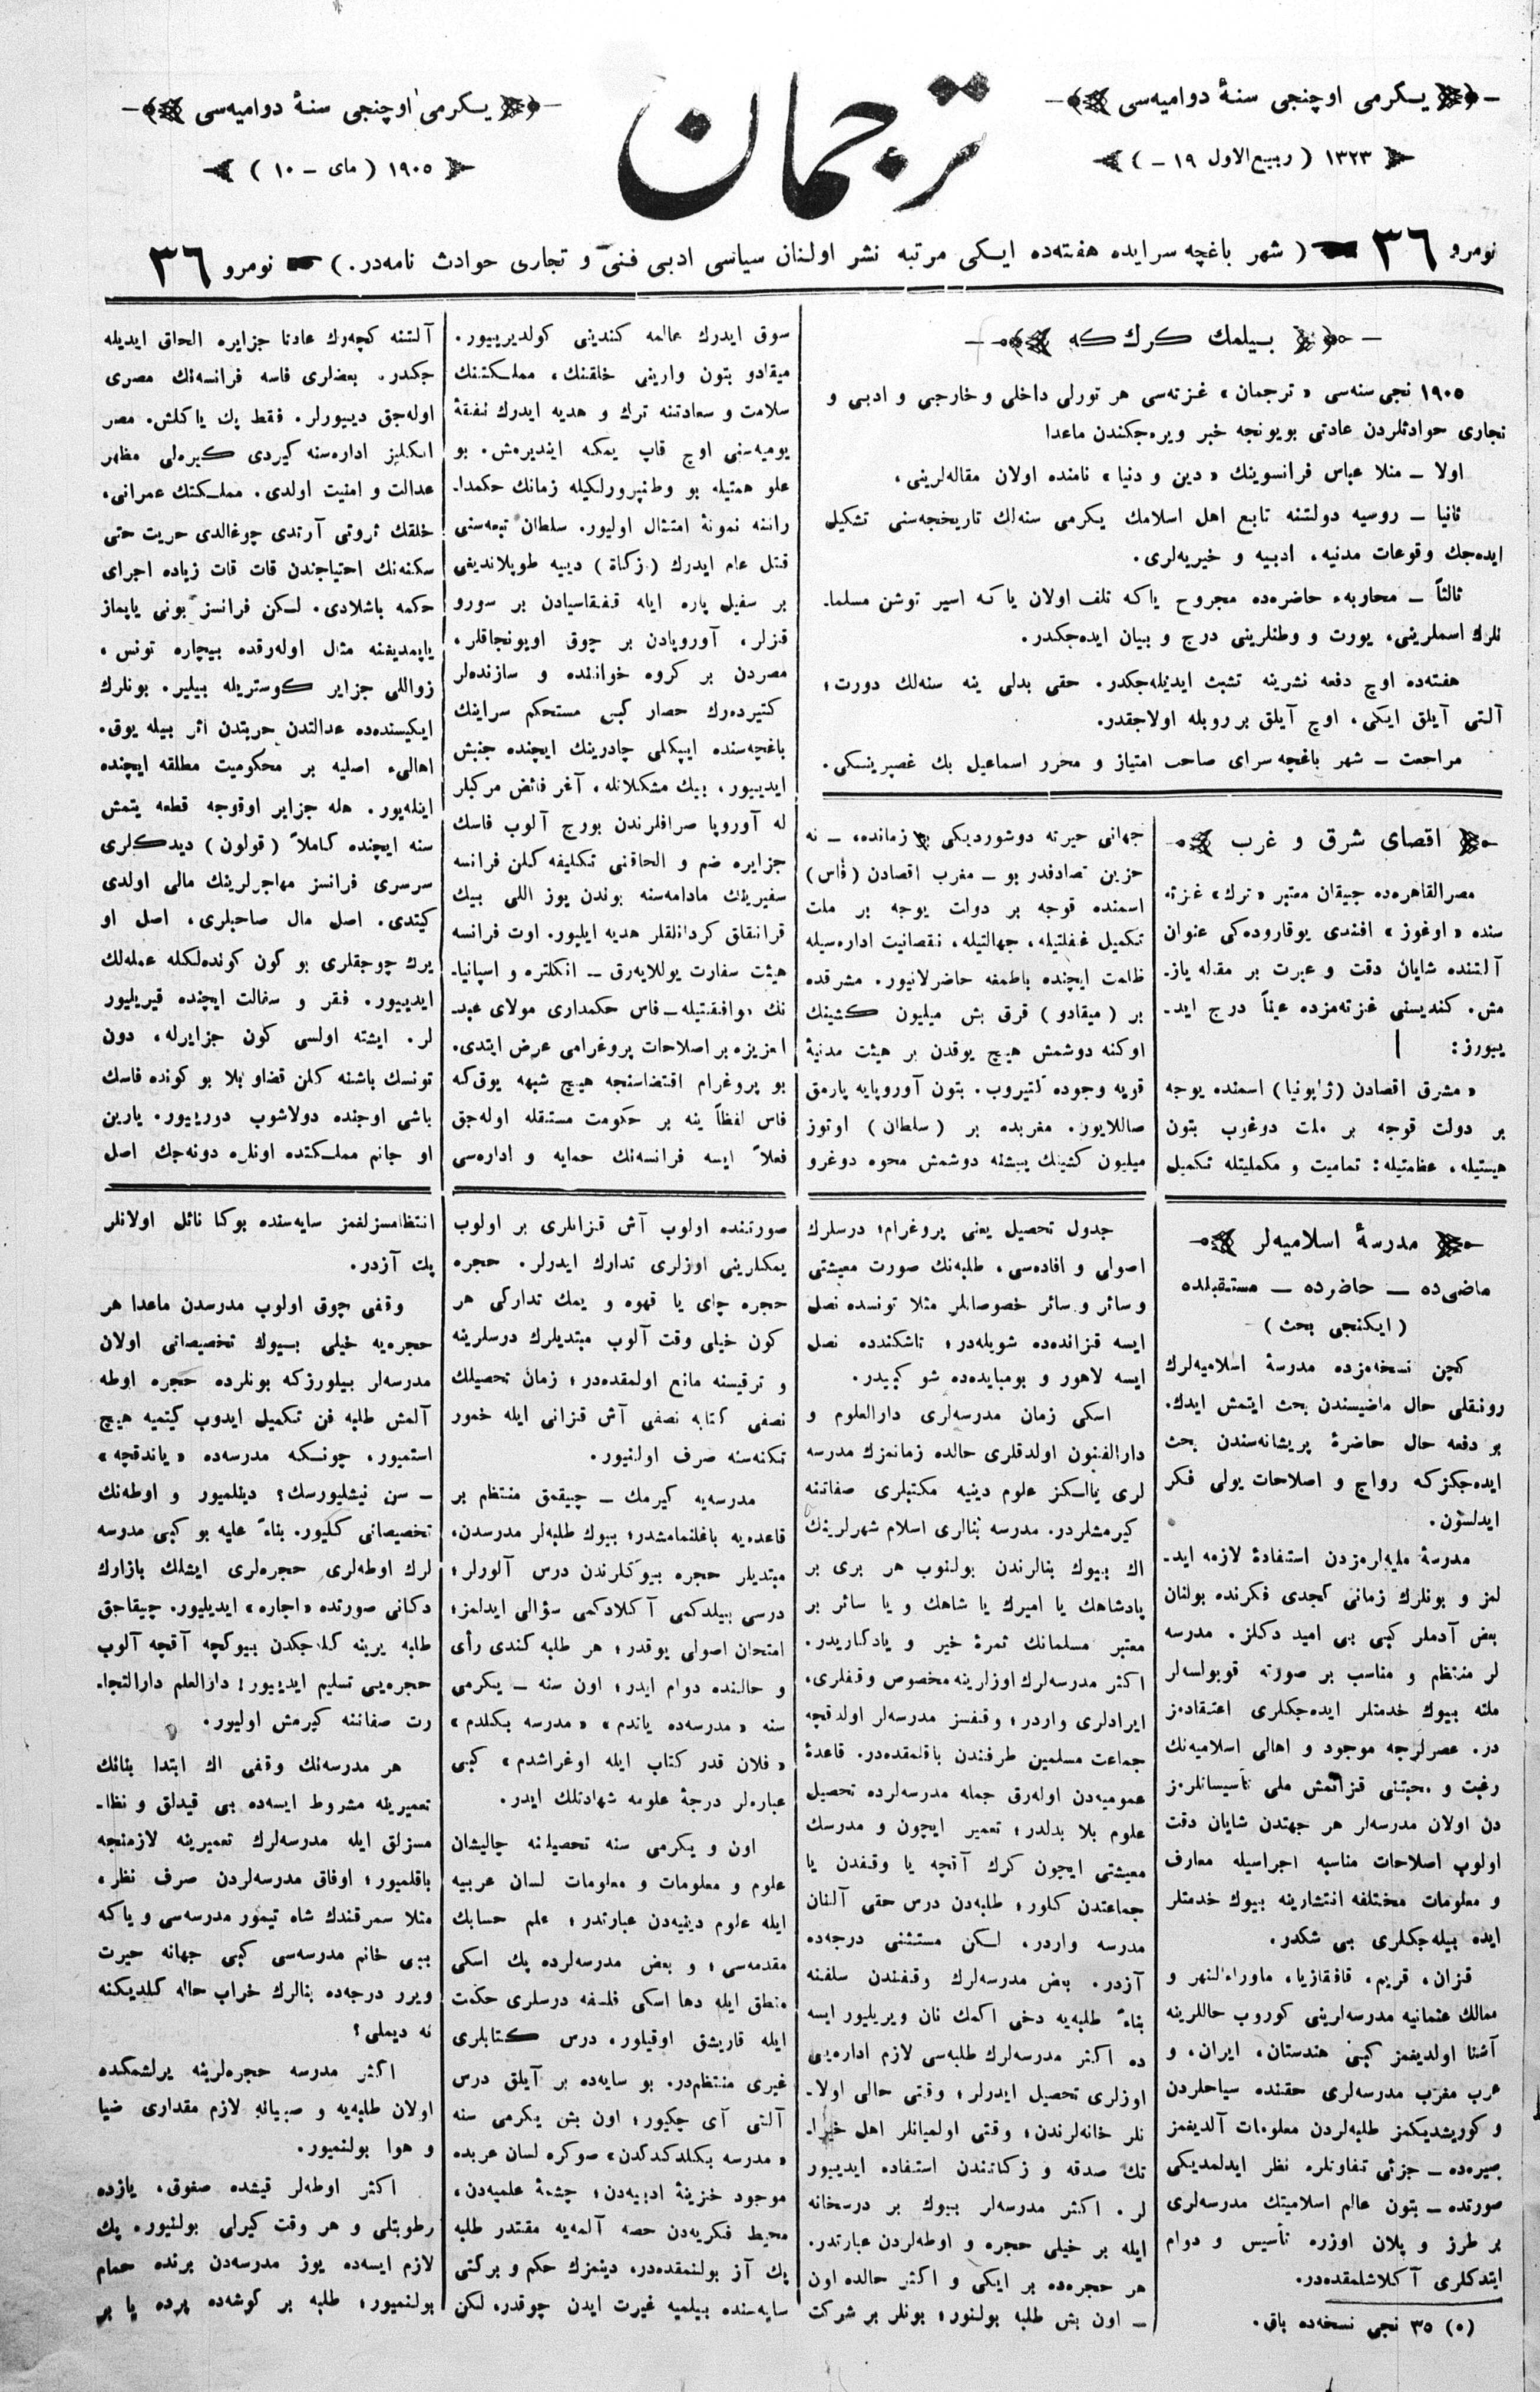 يكرمى اوچنجى سنهٔ دواميه‌سى
١٣٢٣ ( ربيع الاول ١٩ - )
ترجمان
يكرمى اوچنجى سنهٔ دواميه‌سى
١٩٠٥ ( ماى - ١٠ )
نومرو ٣٦ ( شهر باغچه سرايده هفته‌ده ايكى مرتبه نشر اولنان سياسى ادبى فنى و تجارى حوادث نامه‌در. ) نومرو ٣٦
بيلمك كرك كه
١٩٠٥ نجى سنه‌سى « ترجمان » غزته‌سى هر تورلى داخلى و خارجى و ادبى و
تجارى حوادثلردن عادتى بويونجه خبر ويره‌جكندن ماعدا
اولا ـ منلا عباس فرانسوينك « دين و دنيا » نامنده اولان مقاله‌لرينى ،
ثانيا ـ روسيه دولتنه تابع اهل اسلامك يكرمى سنه‌لك تاريخچه‌سنى تشكيل
ايده‌جك وقوعات مدنيه، ادبيه و خيريه‌لرى.
ثالثاً ـ محاربهء حاضره‌ده مجروح ياكه تلف اولان ياكه اسير توشن مسلما-
نلرك اسملرينى، يورت و وطنلرينى درج و بيان ايده‌جكدر.
هفته‌ده اوچ دفعه نشرينه تشبث ايديله‌جكدر. حقى بدلى ينه سنه‌لك دورت ؛
آلتى آيلق ايكى، اوچ آيلق بر روبله اولاجقدر.
مراجعت ـ شهر باغچه سراى صاحب امتياز و محرر اسماعيل بك غصپرينسكى.
اقصاى شرق و غرب
مصرالقاهره‌ده چيقان معتبر « ترك » غزته
سنده « اوغوز » افندى يوقاروده‌كى عنوان
آلتنده شايان دقت و عبرت بر مقاله ياز-
مش. كنديسنى غزته‌مزده عيناً درج ايد-
ييورز :
« مشرق اقصادن ( ژاپونيا ) اسمنده يوجه
بر دولت قوجه بر ملت دوغوب بتون
هيبتيله ، عظمتيله : تماميت و مكمليتله تكميل
جهانى حيرته دوشورديكى بو زمانده، ـ نه
حزين تصادفدر بو ـ مغرب اقصادن ( فاس )
اسمنده قوجه بر دولت يوجه بر ملت
تكميل غفلتيله، جهالتيله، نقصانيت اداره‌سيله
ظلمت ايچنده باطمغه حاضرلانيور. مشرقده
بر ( ميقادو ) قرق بش ميليون كشينك
اوكنه دوشمش هيچ يوقدن بر هيئت مدنيهٔ
قويه وجوده كتيروب. بتون آوروپايه پارمق
صاللايور. مغربده بر ( سلطان ) اوتوز
ميليون كشينك پيشنه دوشمش محوه دوغرو
سوق ايدرك عالمه كندينى كولديرييور.
ميقادو بتون وارينى خلقنك، مملكتنك
سلامت و سعادتنه ترك و هديه ايدرك نفقهٔ
يوميه‌سنى اوچ قاپ يمكه اينديرمش. بو
علو همتيله بو وطنپرورلكيله زمانك حكمدا-
راننه نمونهٔ امتثال اوليور. سلطان تبعه‌سنى
قتل عام ايدرك ( زكاة ) دييه طوپلانديغى
بر سفيل پاره ايله قفقاسيادن بر سورو
قزلر، آوروپادن بر چوق اويونجاقلر،
مصردن بر كروه خواننده و سازنده‌لر
كتيرده‌رك حصار كبى مستحكم سراينك
باغچه‌سنده ايپكلى چادرينك ايچنده جنبش
ايدييور، بيك مشكلاتله، آغر فائض مركبلر
له آوروپا صرافلرندن بورج آلوب فاسك
جزايره ضم و الحاقنى تكليفه كلن فرانسه
سفيرينك مادامه‌سنه بوندن يوز اللى بيك
فرانقلق كردانلقلر هديه ايليور. اوت فرانسه
هيئت سفارت يوللايه‌رق ـ انكلتره و اسپانيا-
نك موافقتيله ـ فاس حكمدارى مولاى عبد-
العزيزه بر اصلاحات پروغرامى عرض ايتدى.
بو پروغرام اقتضاسنجه هيچ شبهه يوق كه
فاس لفظاً ينه بر حكومت مستقله اوله‌جق
فعلاً ايسه فرانسه‌نك حمايه و اداره‌سى
آلتنه كچه‌رك عادتا جزايره الحاق ايديله
جكدر. بعضلرى فاسه فرانسه‌نك مصرى
اوله‌جق دييورلر. فقط پك ياكلش. مصر
انكليز اداره‌سنه كيردى كيره‌لى مظهر
عدالت و امنيت اولدى. مملكتك عمرانى،
خلقك ثروتى آرتدى چوغالدى حريت حتى
سكنه‌نك احتياجندن قات قات زياده اجراى
حكمه باشلادى. لكن فرانسز بونى ياپماز
ياپمديغنه مثال اوله‌رقده بيچاره تونس ،
زواللى جزاير كوستريله بيلير. بونلرك
ايكيسنده‌ده عدالتدن حريتدن اثر بيله يوق.
اهالىء اصليه بر محكوميت مطلقه ايچنده
اينله‌يور. هله جزاير اوقوجه قطعه يتمش
سنه ايچنده كاملاً ( قولون ) ديدكلرى
سرسرى فرانسز مهاجرلرينك مالى اولدى
كيتدى. اصل مال صاحبلرى، اصل او
يرك چوجقلرى بو كون كونده‌لكله عمله‌لك
ايدييور. فقر و سفالت ايچنده قيريليور
لر. ايشته اولسى كون جزايرله، دون
تونسك باشنه كلن قضاو بلا بو كونده فاسك
باشى اوجنده دولاشوب دورييور. يارين
او جانم مملكتده اونلره دونه‌جك اصل
مدرسهٔ اسلاميه‌لر
ماضى‌ده ـ حاضرده ـ مستقبلده
( ايكنجى بحث )
كچن نسخه‌مزده مدرسهٔ اسلاميه‌لرك
رونقلى حال ماضيسندن بحث ايتمش ايدك.
بو دفعه حال حاضرهٔ پريشانه‌سندن بحث
ايده‌جكزكه رواج و اصلاحات يولى فكر
ايدلسون.
مدرسهٔ مليه‌لرمزدن استفادهٔ لازمه ايد-
لمز و بونلرك زمانى كچدى فكرنده بولنان
بعض آدملر كبى بى اميد دكلز. مدرسه
لر منتظم و مناسب بر صورته قويولسه‌لر
ملته بيوك خدمتلر ايده‌جكلرى اعتقادمز
در. عصرلرجه موجود و اهالى اسلاميه‌نك
رغبت و محبتنى قزانمش ملى تأسيساتلرمز
دن اولان مدرسه‌لر هر جهتدن شايان دقت
اولوپ اصلاحات مناسبه اجراسيله معارف
و معلومات مختلفه انتشارينه بيوك خدمتلر
ايده بيله‌جكلرى بى شكدر.
قزان، قريم، قافقازيا، ماوراءالنهر و
ممالك عثمانيه مدرسه‌لرينى كوروب حاللرينه
آشنا اولديغمز كبى هندستان، ايران، و
عرب مغرب مدرسه‌لرى حقنده سياحلردن
و كوريشديكمز طلبه‌لردن معلومات آلديغمز
صيره‌ده ـ جزئى تفاوتلره نظر ايدلمديكى
صورتده ـ بتون عالم اسلاميتك مدرسه‌لرى
بر طرز و پلان اوزره تأسيس و دوام
ايتدكلرى آكلاشلمقده‌در.
(٥) ٣٥ نجى نسخه‌ده باق.
جدول تحصيل يعنى پروغرام؛ درسلرك
اصولى و افاده‌سى، طلبه‌نك صورت معيشتى
و سائر و سائر خصوصاتلر مثلا تونسده نصل
ايسه قزانده‌ده شويله‌در؛ تاشكندده نصل
ايسه لاهور و بومبايده‌ده شو كبيدر.
اسكى زمان مدرسه‌لرى دارالعلوم و
دارالفنون اولدقلرى حالده زمانمزك مدرسه
لرى يالكز علوم دينيه مكتبلرى صفاتنه
كيرمشلردر. مدرسه بنالرى اسلام شهرلرينك
اك بيوك بنالرندن بولنوب هر برى بر
پادشاهك يا اميرك يا شاهك و يا سائر بر
معتبر مسلمانك ثمرهٔ خير و يادكاريدر.
اكثر مدرسه‌لرك اوزلرينه مخصوص وقفلرى،
ايرادلرى واردر؛ وقفسز مدرسه‌لر اولدقچه
جماعت مسلمين طرفندن باقلمقده‌در. قاعدهٔ
عموميه‌دن اوله‌رق جمله مدرسه‌لرده تحصيل
علوم بلا بدلدر؛ تعمير ايچون و مدرسك
معيشتى ايچون كرك آقچه يا وقفدن يا
جماعتدن كلور؛ طلبه‌دن درس حقى آلنان
مدرسه واردر. لكن مستثنى درجه‌ده
آزدر. بعض مدرسه‌لرك وقفندن سلفنه
بناءً طلبه‌يه دخى اكمك نان ويريليور ايسه
ده اكثر مدرسه‌لرك طلبه‌سى لازم اداره‌يى
اوزلرى تحصيل ايدرلر؛ وقتى حالى اولا-
نلر خانه‌لرندن؛ وقتى اولميانلر اهل خيرا-
تك صدقه و زكاتندن استفاده ايدييور
لر. اكثر مدرسه‌لر بيوك بر درسخانه
ايله بر خيلى حجره و اوطه‌لردن عبارتدر.
هر حجره‌ده بر ايكى و اكثر حالده اون
ـ اون بش طلبه بولنور؛ بونلر بر شركت
صورتنده اولوب آش قزانلرى بر اولوب
يمكلرينى اوزلرى تدارك ايدرلر. حجره
حجره چاى يا قهوه و يمك تداركى هر
كون خيلى وقت آلوب مبتديلرك درسلرينه
و ترقيسنه مانع اولمقده‌در؛ زمان تحصيلك
نصفى كتابه نصفى آش قزانى ايله خمور
تكنه‌سنه صرف اولنيور.
مدرسه‌يه كيرمك ـ چيقمق منتظم بر
قاعده‌يه باغلنمامشدر؛ بيوك طلبه‌لر مدرسدن،
مبتديلر حجره بيوكلرندن درس آلورلر؛
درسى بيلدكمى آكلادكمى سؤالى ايدلمز؛
امتحان اصولى يوقدر؛ هر طلبه كندى رأى
و حالنده دوام ايدر؛ اون سنه ـ يكرمى
سنه « مدرسه‌ده ياتدم » « مدرسه بكلدم »
« فلان قدر كتاب ايله اوغراشدم » كبى
عباره‌لر درجهٔ علومه شهادتلك ايدر.
اون و يكرمى سنه تحصيلنه چاليشان
علوم و معلومات و معلومات لسان عربيه
ايله علوم دينيه‌دن عبارتدر؛ علم حسابك
مقدمه‌سى؛ و بعض مدرسه‌لرده پك اسكى
منطق ايله دها اسكى فلسفه درسلرى حكمت
ايله قاريشق اوقيلور. درس كتابلرى
غيرى منتظم‌در. بو سايه‌ده بر آيلق درس
آلتى آى چكيور؛ اون بش يكرمى سنه
« مدرسه بكلدكدكدن » صوكره لسان عربده
موجود خزينهٔ ادبيه‌دن؛ چشمهٔ علميه‌دن،
محيط فكريه‌دن حصه آلمه‌يه مقتدر طلبه
پك آز بولنمقده‌در، دينمزك حكم و بركتى
سايه‌سنده بيلميه غيرت ايدن چوقدر، لكن
انتظامسزلغمز سايه‌سنده بوكا نائل اولانلر
پك آزدر.
وقفى چوق اولوب مدرسدن ماعدا هر
حجره‌يه خيلى بيوك تخصيصاتى اولان
مدرسه‌لر بيلورزكه بونلرده حجره اوطه
آلمش طلبه فن تكميل ايدوب كيتميه هيچ
استميور، چونكه مدرسه‌ده « ياتدقچه »
ـ سن نيشليورسك؟ دينلميور و اوطه‌نك
تخصيصاتى كليور. بناءً عليه بو كبى مدرسه
لرك اوطه‌لرى حجره‌لرى ايشلك بازارك
دكانى صورتده « اجاره » ايديليور. چيقاجق
طلبه يرينه كلاجكدن بيوكچه آقچه آلوب
حجره‌يى تسليم ايدييور! دارالعلم دارالتجا-
رت صفاتنه كيرمش اوليور.
هر مدرسه‌نك وقفى اك ابتدا بنائك
تعميريله مشروط ايسه‌ده بى قيدلق و نظا-
مسزلق ايله مدرسه‌لرك تعميرينه لازمنجه
باقلميور؛ اوفاق مدرسه‌لردن صرف نظر،
مثلا سمرقندك شاه تيمور مدرسه‌سى و ياكه
بيبى خانم مدرسه‌سى كبى جهانه حيرت
ويرر درجه‌ده بنالرك خراب حاله كلديكنه
نه ديملى؟
اكثر مدرسه حجره‌لرينه يرلشمكده
اولان طلبه‌يه و صبيانه لازم مقدارى ضيا
و هوا بولنميور.
اكثر اوطه‌لر قيشده صغوق، يازده
رطوبتلى و هر وقت كيرلى بولنيور. پك
لازم ايسه‌ده يوز مدرسه‌دن برنده حمام
بولنميور؛ طلبه بر كوشه‌ده پرده يا بر